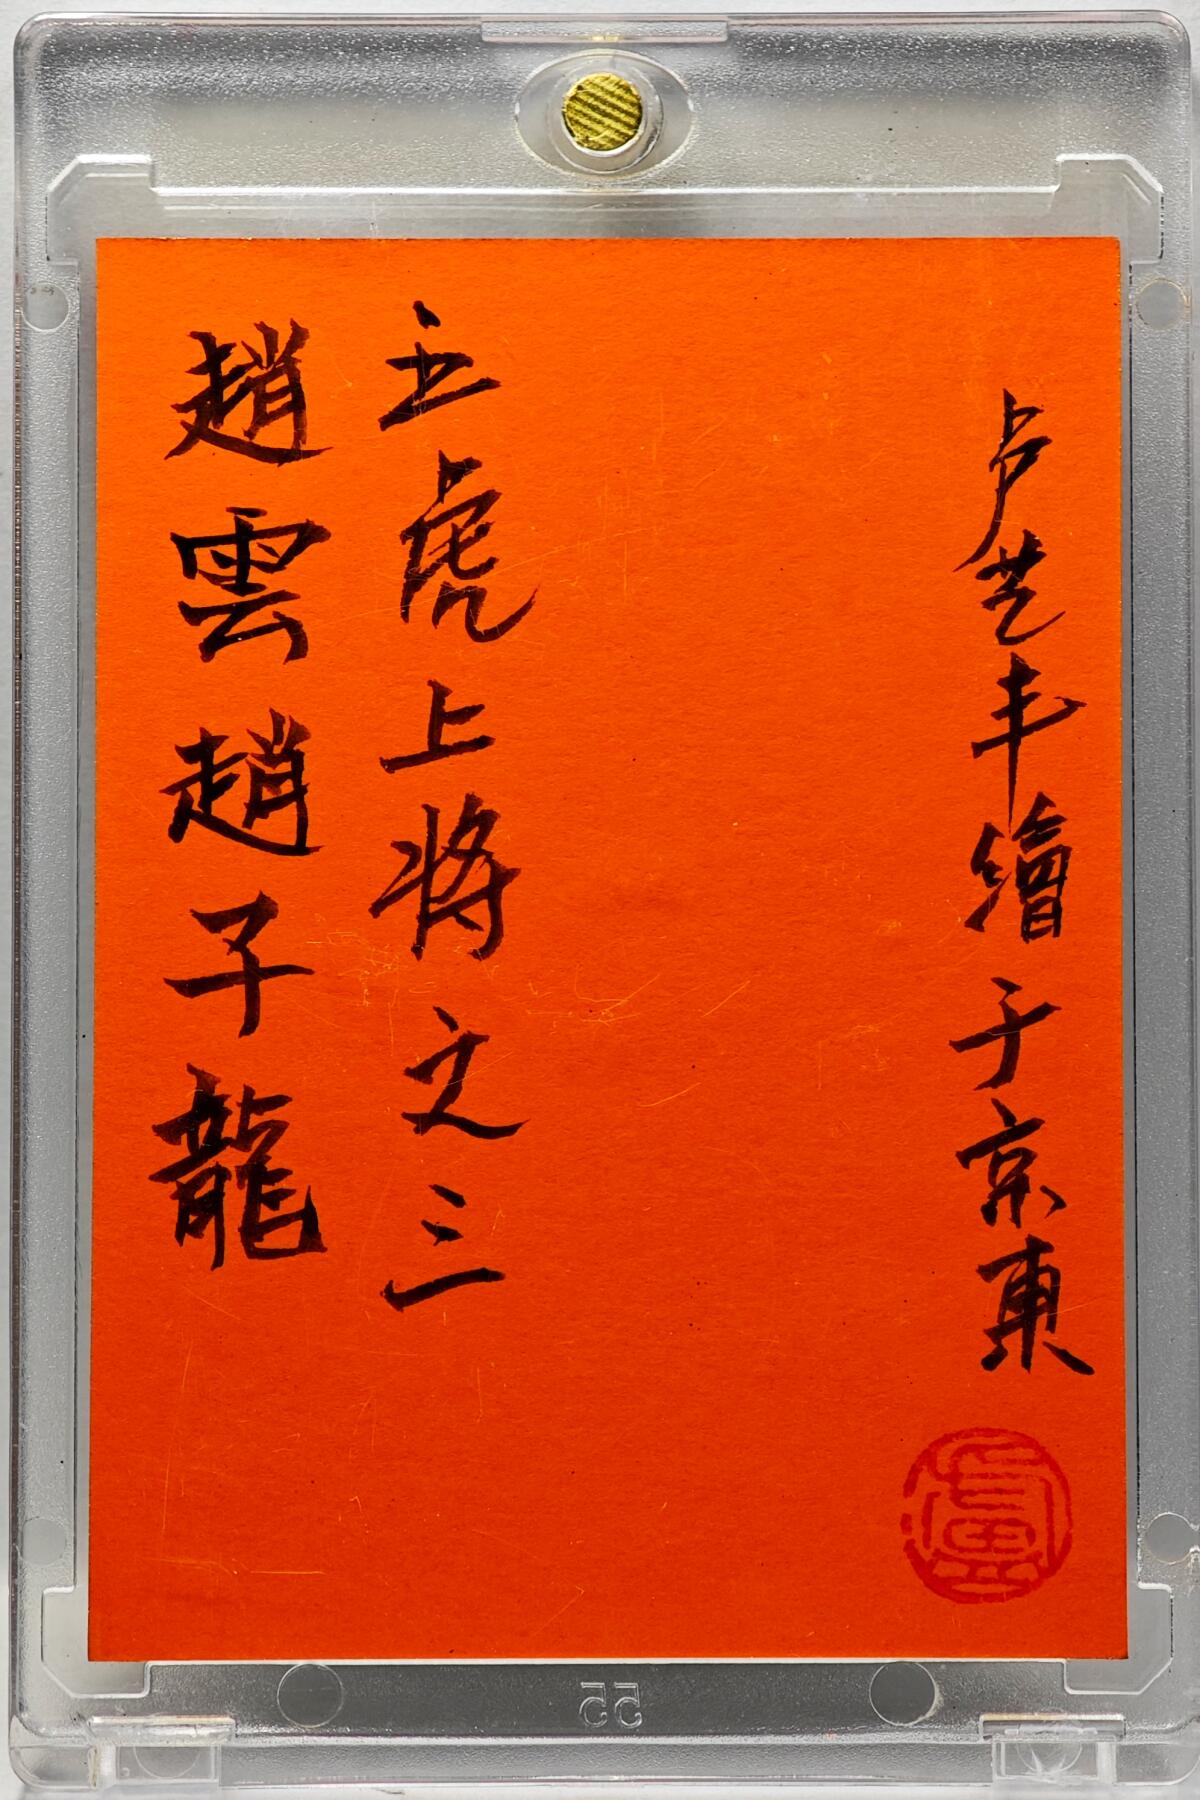 卢艺丰繪于京東
五虎上将之三
趙雲趙子龍
盧
55